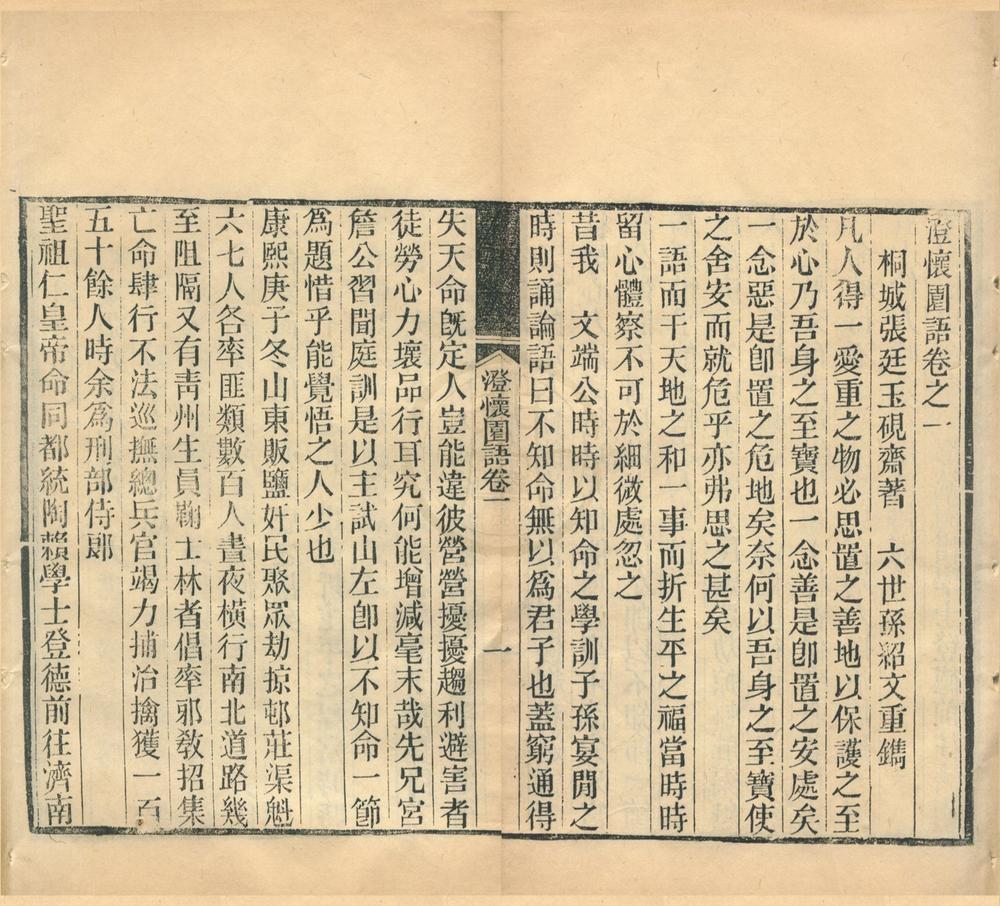 澄懷園語卷之一
桐城張廷玉硯齋著　六世孫紹文重鐫
凡人得一愛重之物必思置之善地以保護之至
於心乃吾身之至寶也一念善是卽置之安處矣
一念惡是卽置之危地矣奈何以吾身之至寶使
之舍安而就危乎亦弗思之甚矣
一語而干天地之和一事而折生平之福當時時
留心體察不可於細微處忽之
昔我　文端公時時以知命之學訓子孫宴閒之
時則誦論語曰不知命無以爲君子也蓋窮通得
澄懷園語卷一
一
失天命旣定人豈能違彼營營擾擾趨利避害者
徒勞心力壞品行耳究何能增減毫末哉先兄宮
詹公習聞庭訓是以主試山左卽以不知命一節
爲題惜乎能覺悟之人少也
康熙庚子冬山東販鹽奸民聚眾劫掠邨莊渠魁
六七人各率匪類數百人晝夜橫行南北道路幾
至阻隔又有靑州生員鞠士林者倡率邪敎招集
亡命肆行不法巡撫總兵官竭力捕治擒獲一百
五十餘人時余爲刑部侍郞
聖祖仁皇帝命同都統陶賴學士登德前往濟南